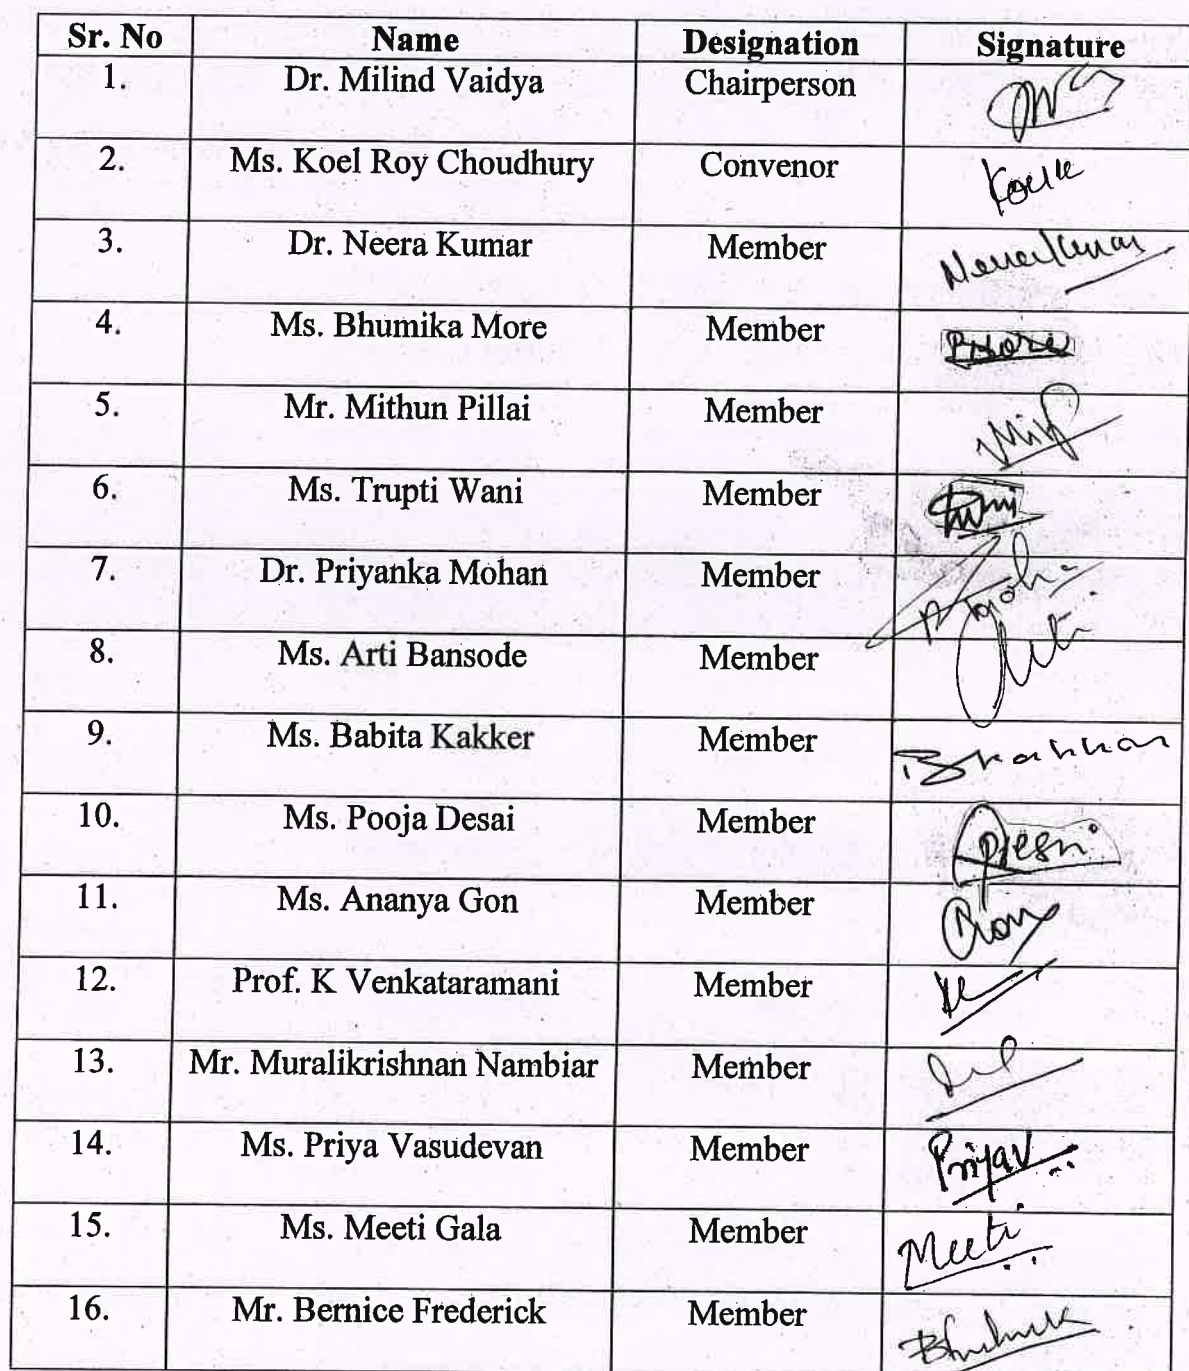 Sr. No Name Designation Signature
1. Dr. Milind Vaidya Chairperson
2. Ms. Koel Roy Choudhury Convenor
3. Dr. Neera Kumar Member
4. Ms. Bhumika More Member
5. Mr. Mithun Pillai Member
6. Ms. Trupti Wani Member
7. Dr. Priyanka Mohan Member
8. Ms. Arti Bansode Member
9. Ms. Babita Kakker Member
10. Ms. Pooja Desai Member
11. Ms. Ananya Gon Member
12. Prof. K Venkataramani Member
13. Mr. Muralikrishnan Nambiar Member
14. Ms. Priya Vasudevan Member PriyaV
15. Ms. Meeti Gala Member Meeti
16. Mr. Bernice Frederick Member